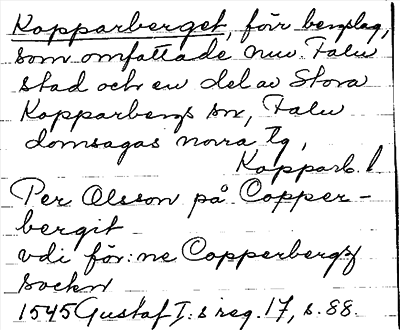 Kopparberget, förr bergslag,
som omfattade nuv. Falu
stad och en del av Stora
Kopparbergs sn, Falu
domsagas norra tlg,
Kopparb. l
Per Olsson på Copper-
bergit
vdi för:ne Copperbergz
sockn
1545 Gustaf I:s reg. 17, s. 88.